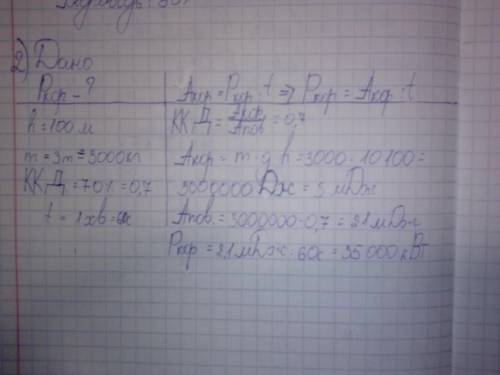 2) Дано
Pкор - ?
h = 100 м
m = 3т = 3000кг
ККД = 70% = 0,7
t = 1хв = 60с
Aкор = Pкор · t => Pкор = Aкор : t
ККД = Aкор/Aпов = 0,7
Aкор = m · g h = 3000 · 10 100 =
3000000 Дж = 3 мДж
Aпов. = 3000000 · 0,7 = 2,1 мДж
Pкор = 2,1 мДж : 60с = 35 000 кВт